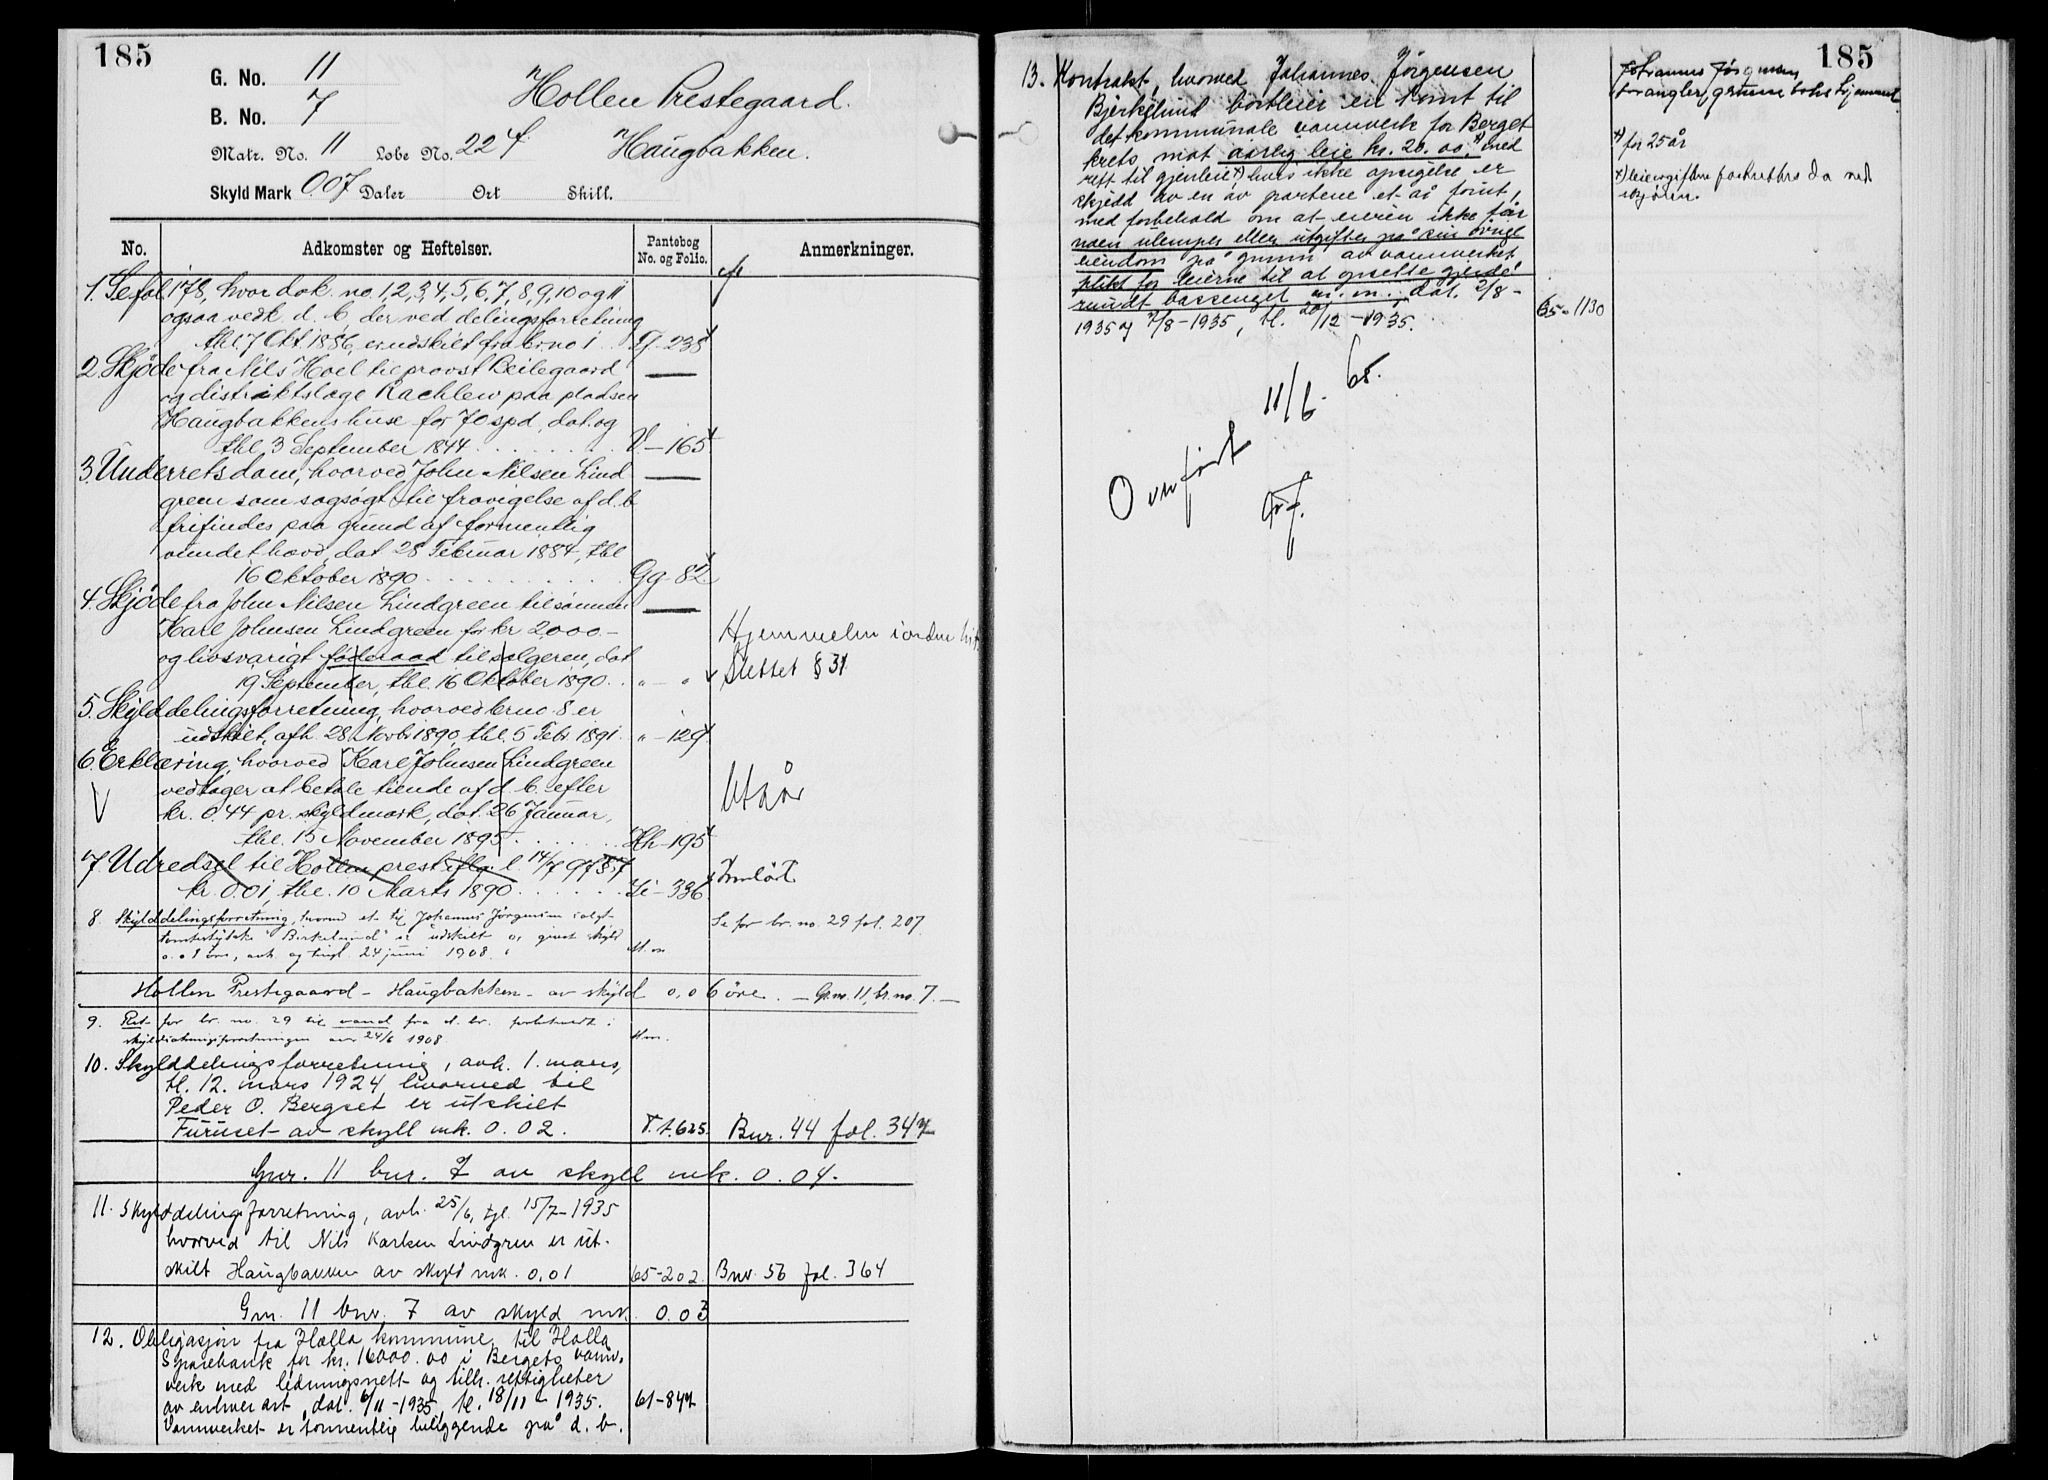 185
G. No. 11
B. No. 7
Hollen Prestegaard.
Matr. No. 11 Løbe No. 224 Haugbakken.
Skyld Mark 0 07 Daler Ort Skill.
No. Adkomster og Heftelser. Pantebog No. og Folio. Anmerkninger.
1. Se fol. 178, hvor dok. no. 1, 2, 3, 4, 5, 6, 7, 8, 9, 10 og 11
ogsaa vedk. d. b. der ved delingsforretning
thl. 7 Okt. 1886, er udskilt fra br.no 1 G-235
2. Skjøde fra Nils Hoel til provst Beilegaard
og distriktslæge Rachlew paa pladsen
Haugbakkens huse for 70 spd, dat. og
thl. 3 September 1844 V-165
3. Underretsdom, hvorved John Nilsen Lind
green som sagsøgt til fravigelse af d. b.
frifindes paa grund af formentlig
vundet hævd, dat 28 Februar 1884, thl
16 Oktober 1890 Gg-82
4. Skjøde fra John Nilsen Lindgreen til sønnen
Karl Johnsen Lindgreen for kr 2000.- Hjemmelen i orden
og livsvarigt føderaad til sælgeren, dat
19 September, thl. 16 Oktober 1890. " - " Slettet § 31
5. Skylddelingsforretning, hvorved br.no 8 er
udskilt, afh. 28 Novbr 1890, thl. 5 Febr 1891. " -129
6. Erklæring, hvorved Karl Johnsen Lindgreen
vedtager at betale tiende af d. b. efter
kr. 0.44 pr. skyldmark, dat. 26 Januar,
thl. 15 November 1895 Hh-195
7. Udredsel til Hollen prest
kr. 0.01, thl. 10 Marts 1890 Ii-336 Innløst
8. Skylddelingsforretning, hvorved et til Johannes Jørgensen solgt Se for br. no. 29 fol. 207
tomtestykke "Birkelund" er udskilt og givet skyld
avh. og tingl. 24 juni 1908.
Hollen Prestegaard - Haugbakken - av skyld 0,06 øre. - Gr.no. 11, br.no. 7. -
9. Ret for br. no. 29 til vand fra d. br. forbeholdt i
skylddelingsforretningen av 24/6 1908
10. Skylddelingsforretning, avh. 1. mars,
tl. 12. mars 1924 hvorved til
Peder O. Bergset er utskilt
Furuset av skyll mk. 0.02. T.t.625. Bnr. 44 fol. 347
Gnr. 11 bnr. 7 av skyll mk. 0.04.
11. Skylddelingsforretning, avh. 25/6, tgl. 15/7-1935
hvorved til Nils Karlsen Lindgren er ut-
skilt Haugbakken av skyld mk. 0,01 65-202. Bnr. 56 fol. 364
Gnr. 11 bnr. 7 av skyld mk. 0.03
12. Obligasjon fra Holla kommune til Holla
Sparebank for kr. 16000.00 i Bergets vann-
verk med ledningsnett og tilh. rettigheter
av enhver art, dat. 6/11-1935, tl. 18/11-1935. 61-847
Vannverket er formentlig beliggende på d. b.
185
13. Kontrakt, hvorved Johannes Jørgensen
Bjerkelund bortleier en tomt til
det kommunale vannverk for Berget
krets mot aarlig leie kr. 20.00. x) med
rett til gjenleie x) hvis ikke opsigelse er
skjedd av en av partene et år forut,
med forbehold om at eieren ikke får
noen ulemper eller utgifter på sin øvrige
eiendom på grunn av vannverket
plikt for leierne til at opsette gjerde
rundt bassenget m.m., dat. 2/8-
1935 og 7/8-1935, tl. 20/12-1935. 65-1130
Johannes Jørgensen
mangler grunnbokshjemmel
x) for 25 år
x) leieavgiften fastsettes da ved
skjønn.
Overført 11/6. 65.